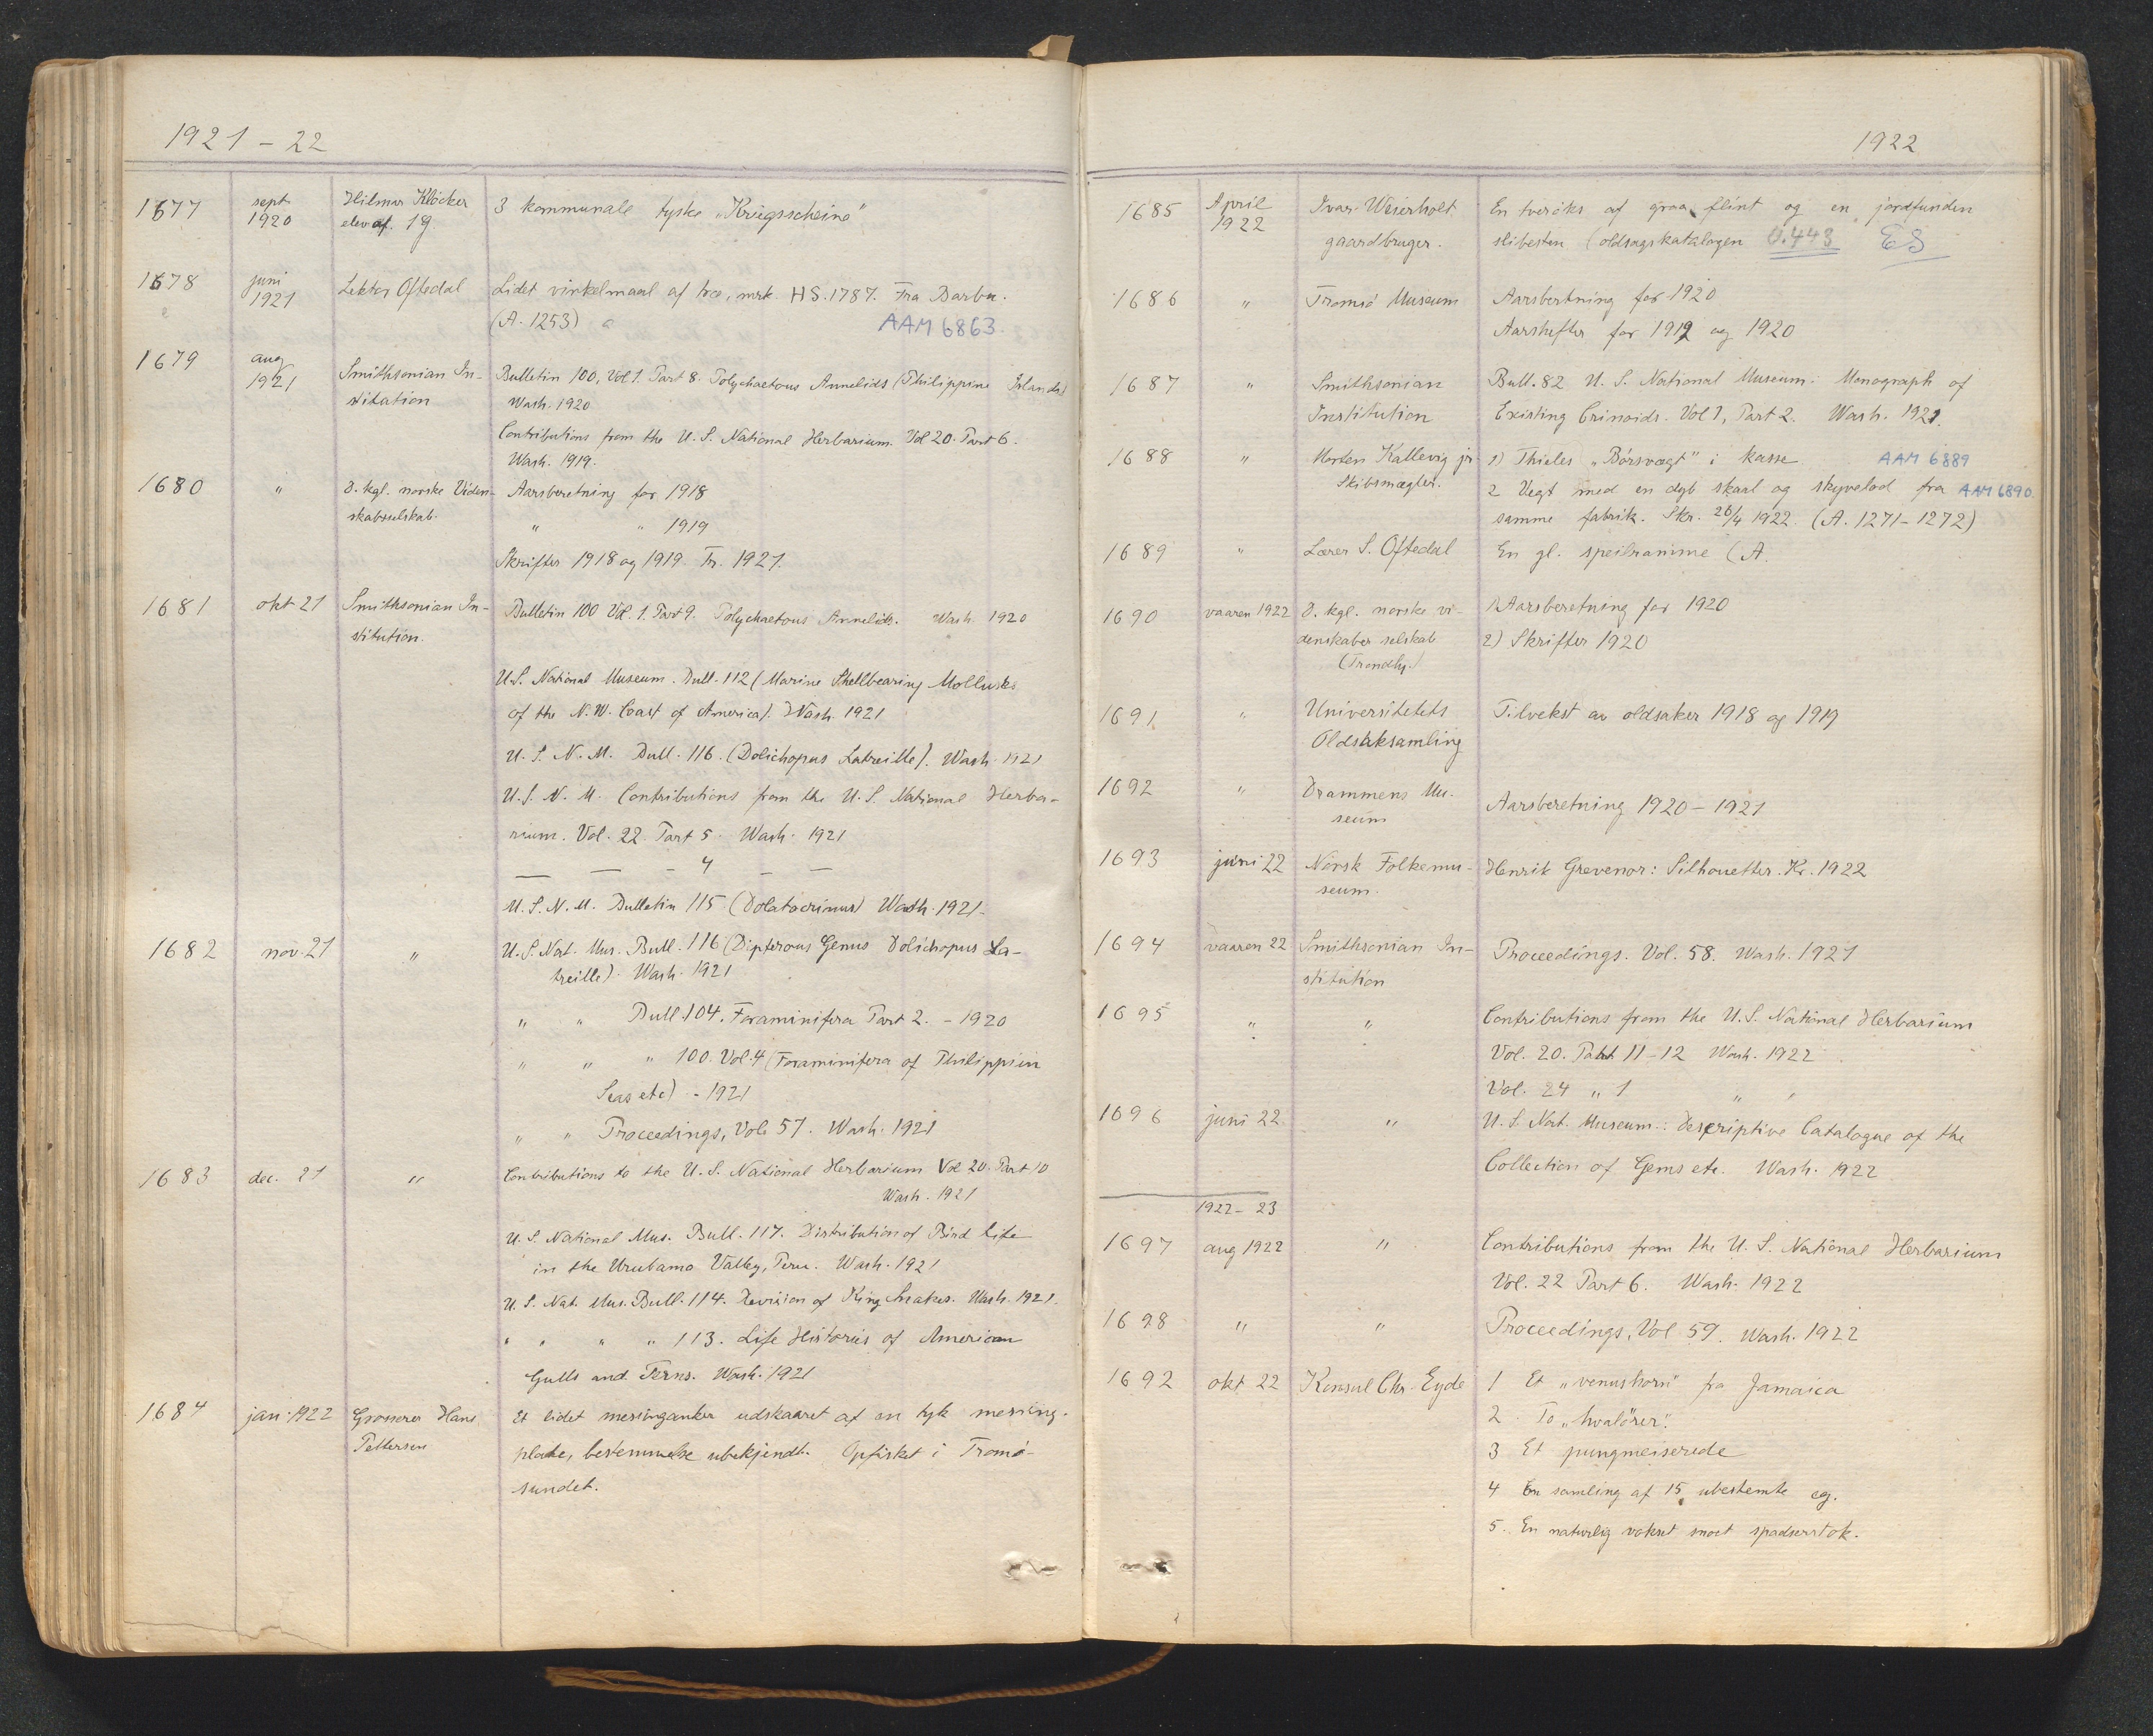 1921 - 22
1677 sept 1920 Hilmar Klöcker 3 kommunale tyske „Kriegsscheine"
elev af. 1g.
1678 juni 1921 Lektor Oftedal Lidet vinkelmaal af træ, mrk. HS. 1787. Fra Barbu.
(A. 1253) AAM 6863.
1679 aug 1921 Smithsonian In- Bulletin 100, Vol 1. Part 8. Polychaetous Annelids (Philippine Islands)
stitution Wash. 1920
Contributions from the U. S. National Herbarium. Vol 20. Part 6.
Wash. 1919.
1680 " d. kgl. norske Viden- Aarsberetning for 1918
skabsselskab. " " 1919
Skrifter 1918 og 1919. Tr. 1921.
1681 okt 21 Smithsonian In- Bulletin 100 Vol. 1. Part 9. Polychaetous Annelids. Wash. 1920
stitution.
U.S. National Museum. Bull. 112 (Marine Shellbearing Mollusks
of the N. W. Coast of America). Wash. 1921
U. S. N. M. Bull. 116. (Dolichopus Latreille). Wash. 1921
U. S. N. M. Contributions from the U. S. National Herba-
rium. Vol. 22. Part 5. Wash. 1921
— — — 4 — —
U. S. N. M. Bulletin 115 (Dolatocrinus) Wash. 1921.
1682 nov. 21 " U. S. Nat. Mus. Bull. 116 (Dipterous Genus Dolichopus La-
treille). Wash. 1921
" " Bull. 104. Foraminifera Part 2. - 1920
" " " 100. Vol. 4 (Foraminifera of Philippin
Seas etc) - 1921
" " Proceedings, Vol. 57. Wash. 1921
1683 dec. 21 " Contributions to the U. S. National Herbarium Vol 20. Part 10
Wash. 1921
U. S. National Mus. Bull. 117. Distribution of Bird life
in the Urubamo Valley, Peru. Wash. 1921
U. S. Nat. Mus. Bull. 114. Revision of King Snakes. Wash. 1921.
" " " " 113. Life Histories of American
Gulls and Terns. Wash. 1921
1684 jan. 1922 Grosserer Hans Et lidet messinganker udskaaret af en tyk messing-
Pettersen plade, bestemmelse ubekjendt. Opfisket i Tromø-
sundet.
1922
1685 April 1922 Ivar Weierholt En tverøks af graa flint og en jordfunden
gaardbruger. slibesten (oldsagskatalogen O.443 ES
1686 " Tromsö Museum Aarsbertning for 1920
Aarshefter for 1919 og 1920
1687 " Smithsonian Bull. 82 U. S. National Museum: Monograph of
Institution Existing Crinoids. Vol 1, Part 2. Wash. 1921.
1688 " Morten Kallevig jr 1) Thieles „Börsvægt" i kasse AAM 6889
Skibsmægler. 2 Vegt med en dyb skaal og skyvelod fra AAM 6890.
samme fabrik. Skr. 26/4 1922. (A. 1271-1272)
1689 " Lærer S. Oftedal En gl. speilramme (A.
1690 vaaren 1922 d. kgl. norske vi- 1) Aarsberetning for 1920
denskabers selskab 2) Skrifter 1920
(Trondhj.)
1691 " Universitetets Tilvekst av oldsaker 1918 og 1919
Oldsaksamling
1692 " Drammens Mu- Aarsberetning 1920 - 1921
seum
1693 juni 22 Norsk Folkemu- Henrik Grevenor: Silhouetter. Kr. 1922
seum.
1694 vaaren 22 Smithsonian In- Proceedings. Vol. 58. Wash. 1921
stitution
1695 " " Contributions from the U. S. National Herbarium
Vol. 20. Part 11-12 Wash. 1922
Vol. 24 " 1 " "
1696 juni 22. " U. S. Nat. Museum: Descriptive Catalogue of the
Collection of Gems etc. Wash. 1922
1922 - 23
1697 aug 1922 " Contributions from the U. S. National Herbarium
Vol. 22 Part 6. Wash. 1922
1698 " " Proceedings, Vol 59. Wash. 1922
1692 okt 22 Konsul Chr. Eyde 1 Et „venushorn" fra Jamaica
2. To „hvalörer".
3 Et pungmeiserede
4 En samling af 15 ubestemte eg.
5. En naturlig vokset snoet spadserstok.